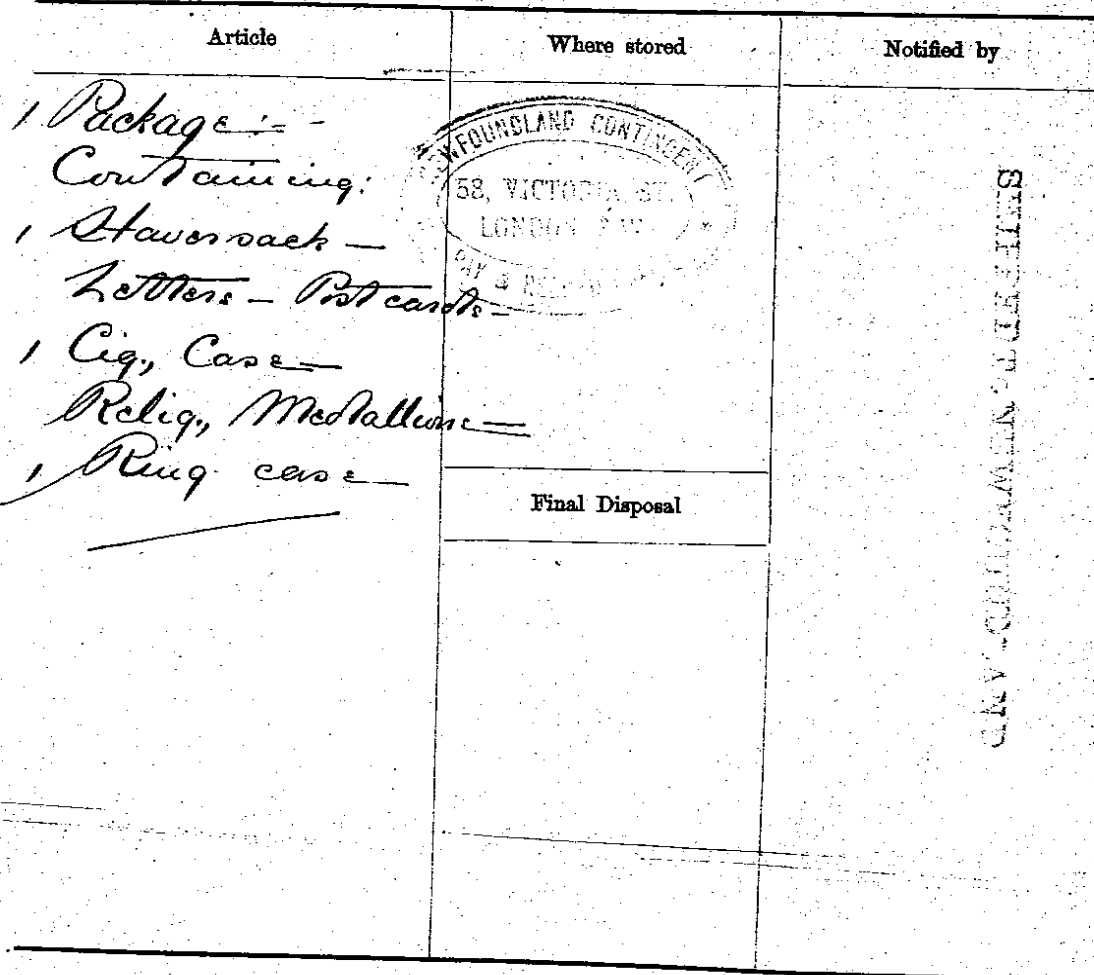 Article
Where stored
Notified by
1 Package :-
Containing:
1 Haversack —
Letters — Postcards —
1 Cig., Case —
Relig., Medallions —
1 Ring case —
NEWFOUNDLAND CONTINGENT
58, VICTORIA ST.
LONDON S.W.
PAY &
Final Disposal
SHIPPED NEWFOUNDLAND